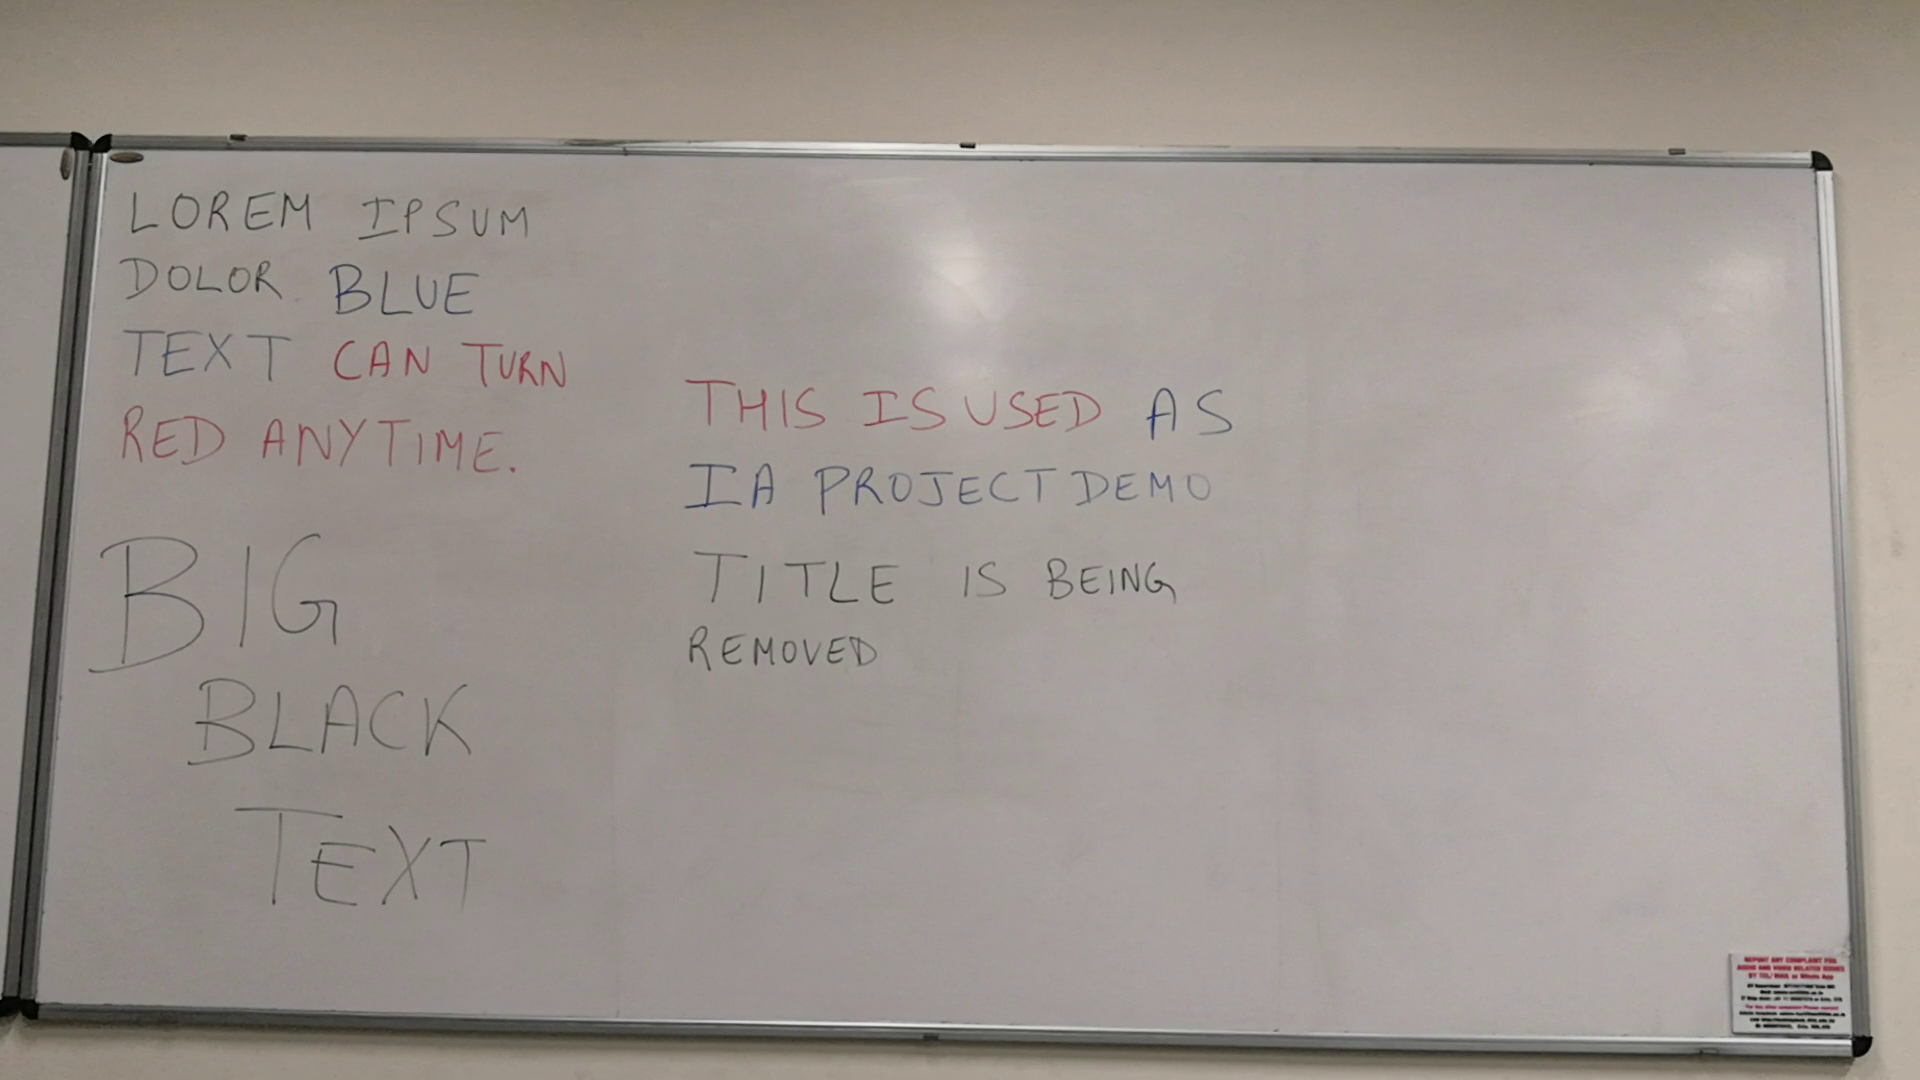 LOREM IPSUM
DOLOR BLUE
TEXT CAN TURN
RED ANYTIME.
BIG
BLACK
TEXT
THIS IS USED AS
IA PROJECT DEMO
TITLE IS BEING
REMOVED
REPORT ANY COMPLAINT FOR
AUDIO AND VIDEO RELATED ISSUES
BY TEL/ MAIL or Whats App